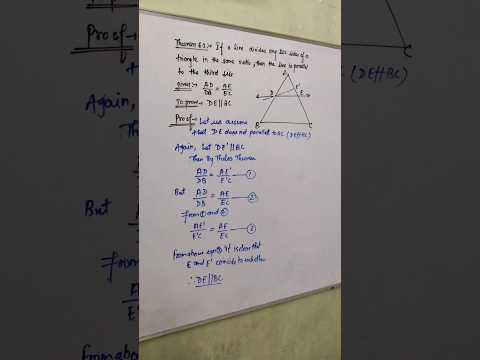 Theorem 6.2:- If a line divides any two sides of a
triangle in the same ratio, then the line is parallel
to the third side
Given:- AD/DB = AE/EC
To prove:- DE||BC
Proof:- Let us assume
that DE does not parallel to BC (DE∦BC)
Again, Let DE'||BC
Then By Thales Theorem
AD/DB = AE'/E'C — ①
But AD/DB = AE/EC — ②
from ① and ②
AE'/E'C = AE/EC — ③
from above eqn ③ it is clear that
E and E' coincide to each other
∴ DE||BC
A
D
E'
E
B
C
Proof
Again,
But AD/DB
from
AE'/E'C
From abo
(DE∦BC)
eqn ③ it is clear that